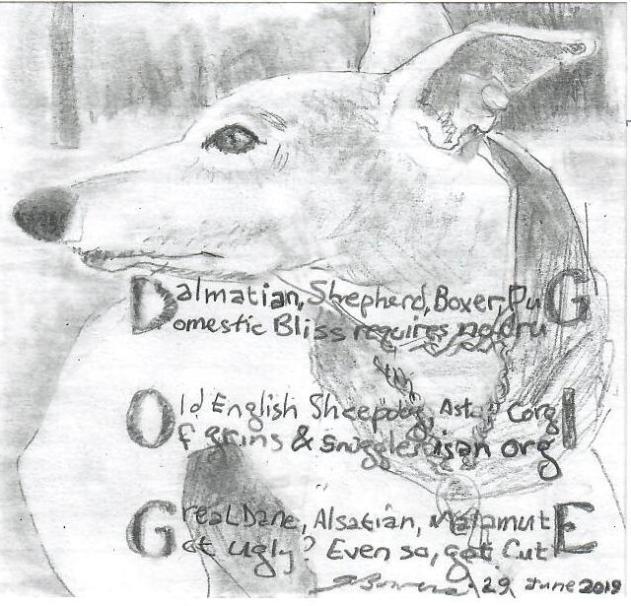 Dalmatian, Shepherd, Boxer, PuG
Domestic Bliss requires no druG
Old English Sheepdog, CorgI
Of grins & snuggles is an orgI
Great Dane, Alsatian, MalamutE
Got Ugly? Even so, got CutE
29 June 2019